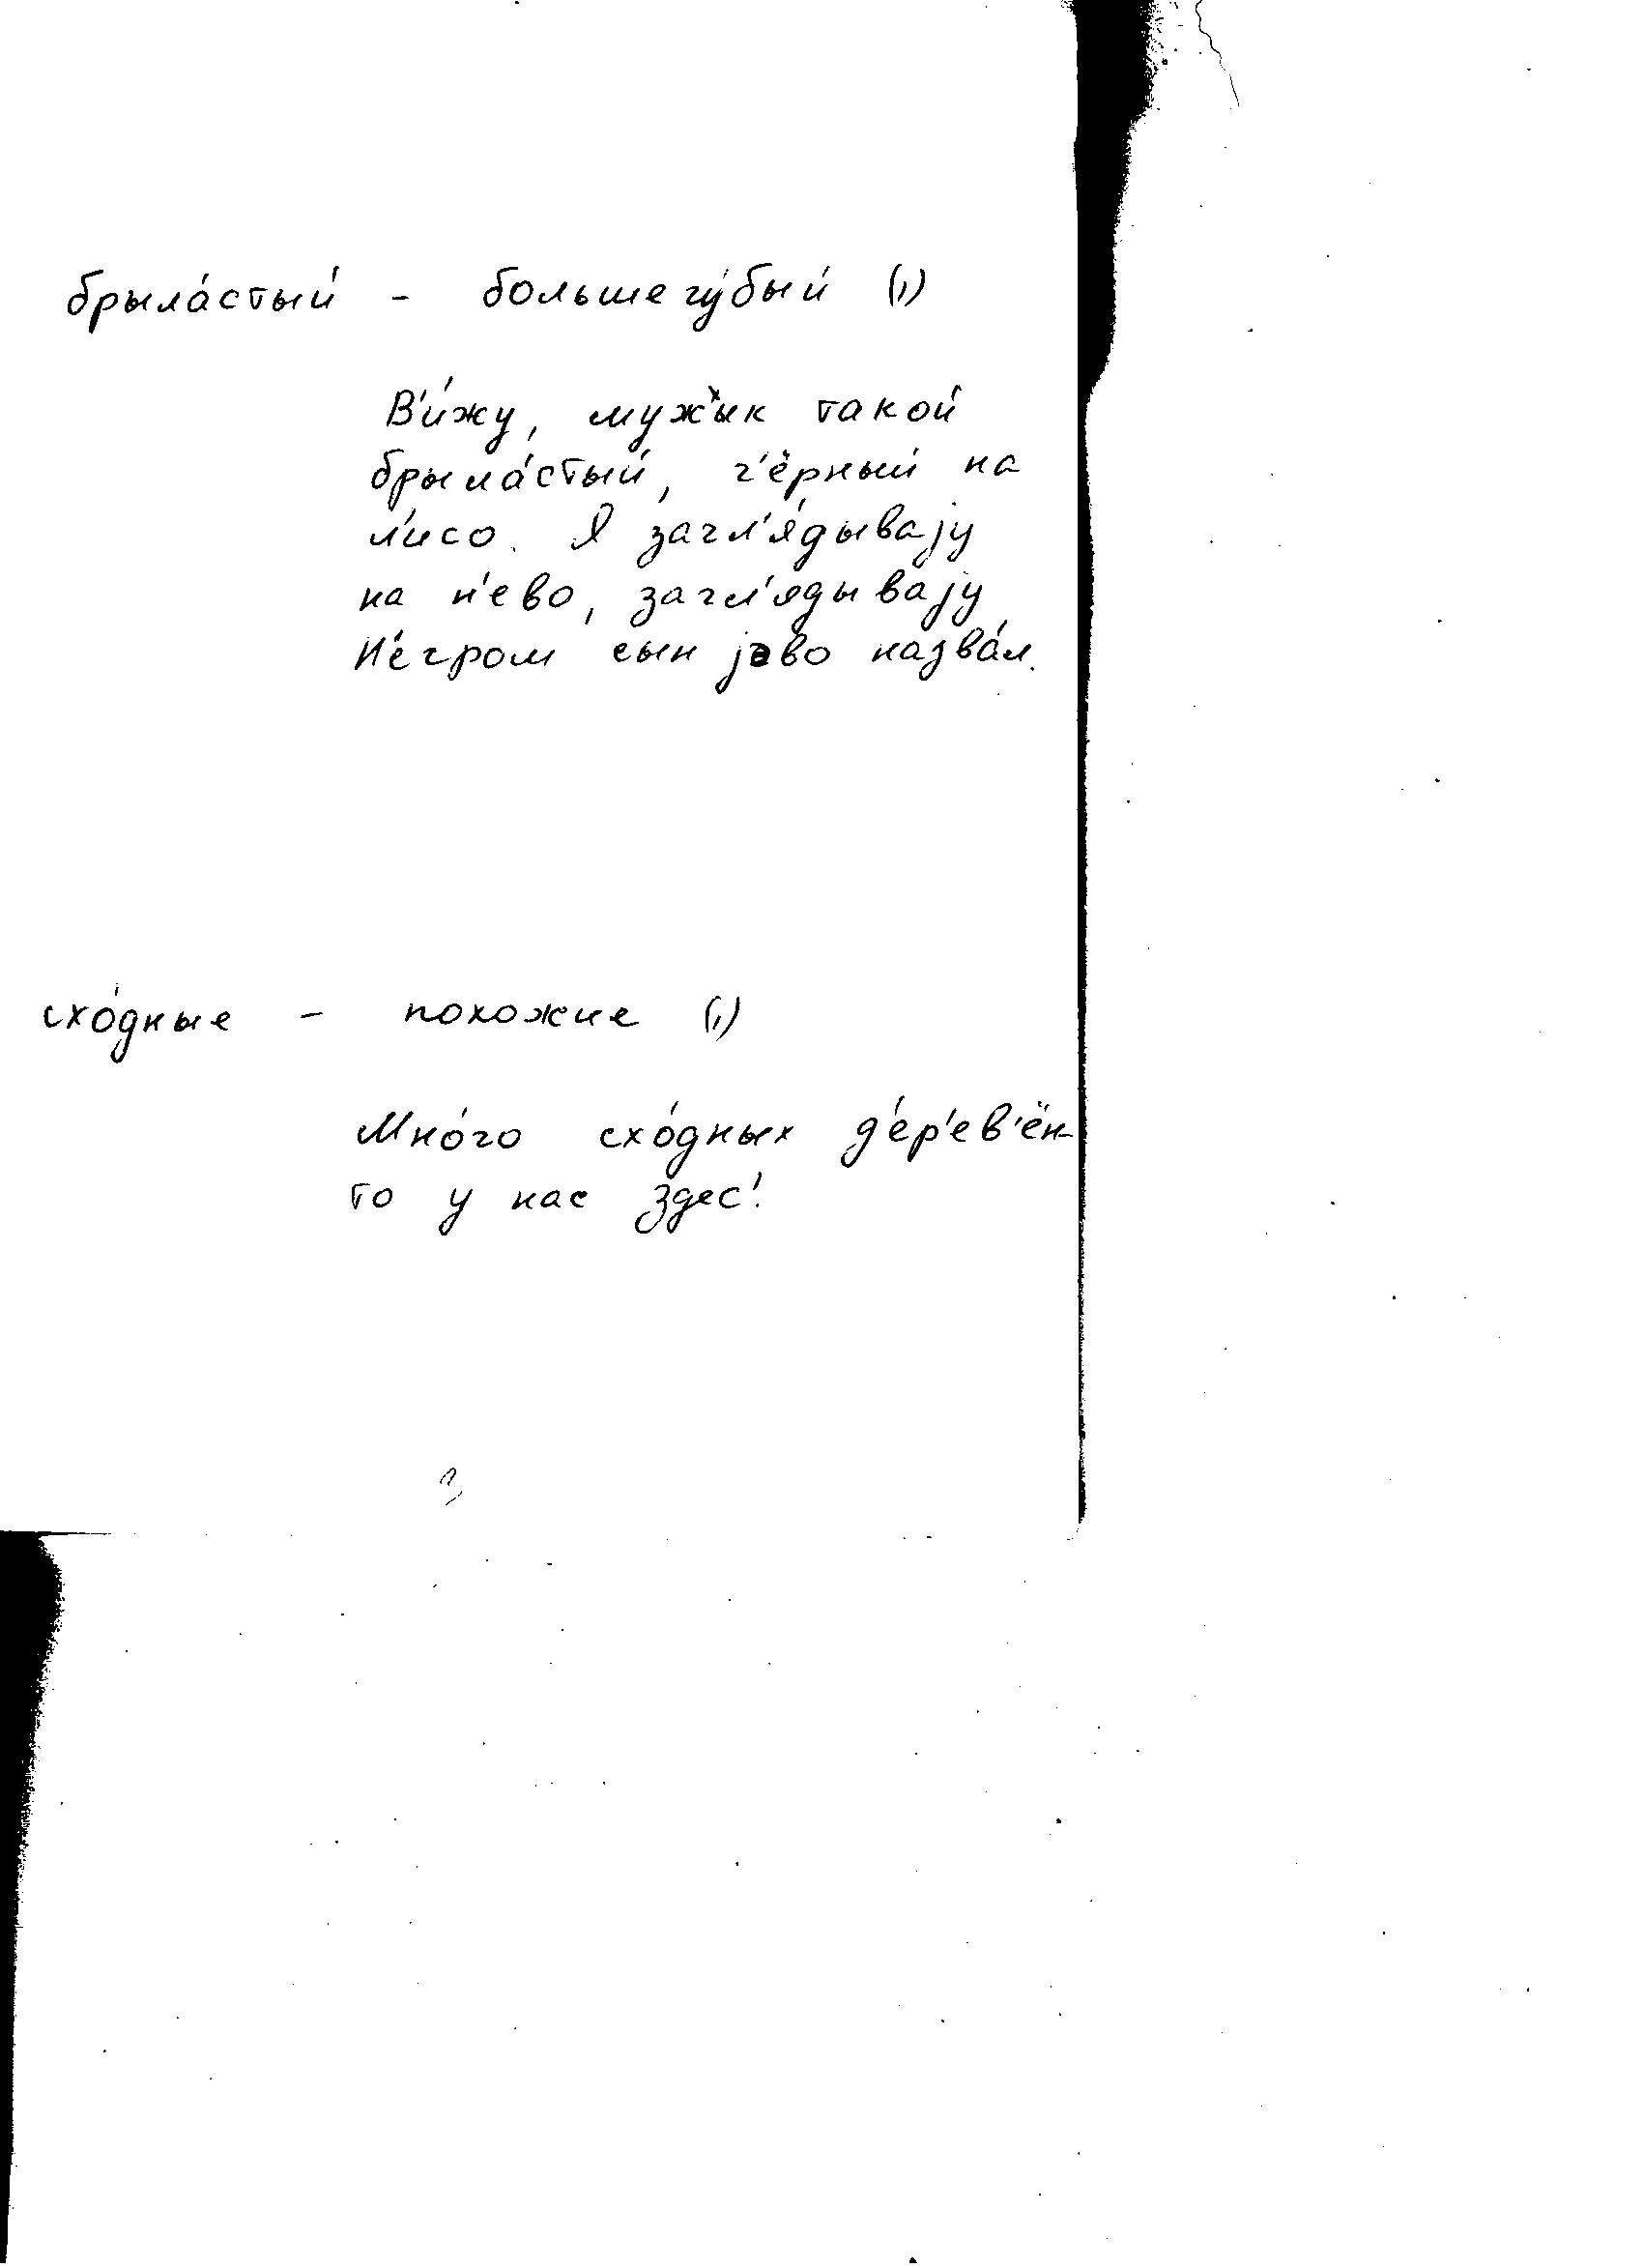 брыла́стый - большегу́бый (1)
В'и́жу, муж'ык такой
брыла́стый, ч'ёрный на
л'исо. Я загл'я́дывајy
на н'ево, загл'ядывајy
Н'е́гром сын јэво назва́л.
схо́дные - похожие (1)
Мно́го схо́дных д'ер'ев'ён-
то у нас здес'.